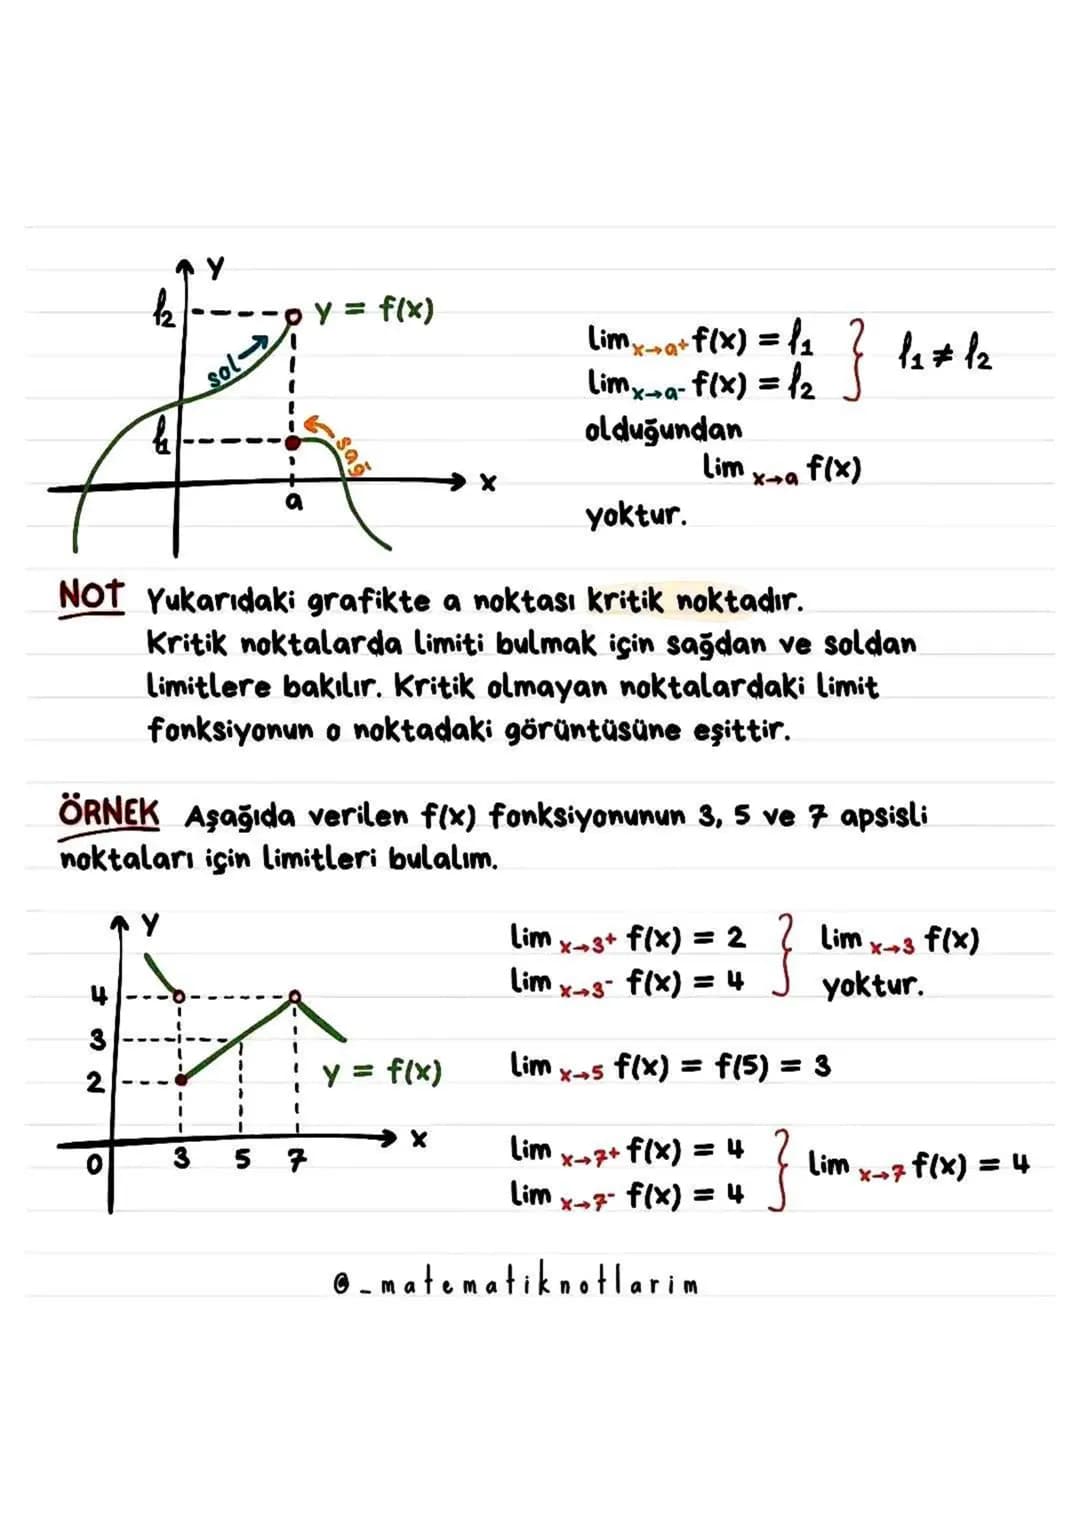 y
ℓ₂
y = f(x)
sol
ℓ₁
sağ
x
a
lim x→a⁺ f(x) = ℓ₁
lim x→a⁻ f(x) = ℓ₂
ℓ₁ ≠ ℓ₂
olduğundan
lim x→a f(x)
yoktur.
NOT Yukarıdaki grafikte a noktası kritik noktadır.
Kritik noktalarda limiti bulmak için sağdan ve soldan
limitlere bakılır. Kritik olmayan noktalardaki limit
fonksiyonun o noktadaki görüntüsüne eşittir.
ÖRNEK Aşağıda verilen f(x) fonksiyonunun 3, 5 ve 7 apsisli
noktaları için limitleri bulalım.
y
4
3
2
y = f(x)
x
0 3 5 7
lim x→3⁺ f(x) = 2
lim x→3⁻ f(x) = 4
lim x→3 f(x)
yoktur.
lim x→5 f(x) = f(5) = 3
lim x→7⁺ f(x) = 4
lim x→7⁻ f(x) = 4
lim x→7 f(x) = 4
@_matematiknotlarim